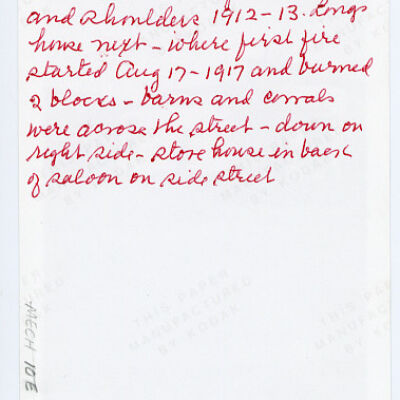 and shoulders 1912-13. Longs
house next - where first fire
started Aug 17-1917 and burned
2 blocks - barns and corrals
were across the street - down on
right side - store house in back
of saloon on side street
THIS PAPER
MANUFACTURED
BY KODAK
THIS PAPER
MANUFACTURED
BY KODAK
MECH 10E